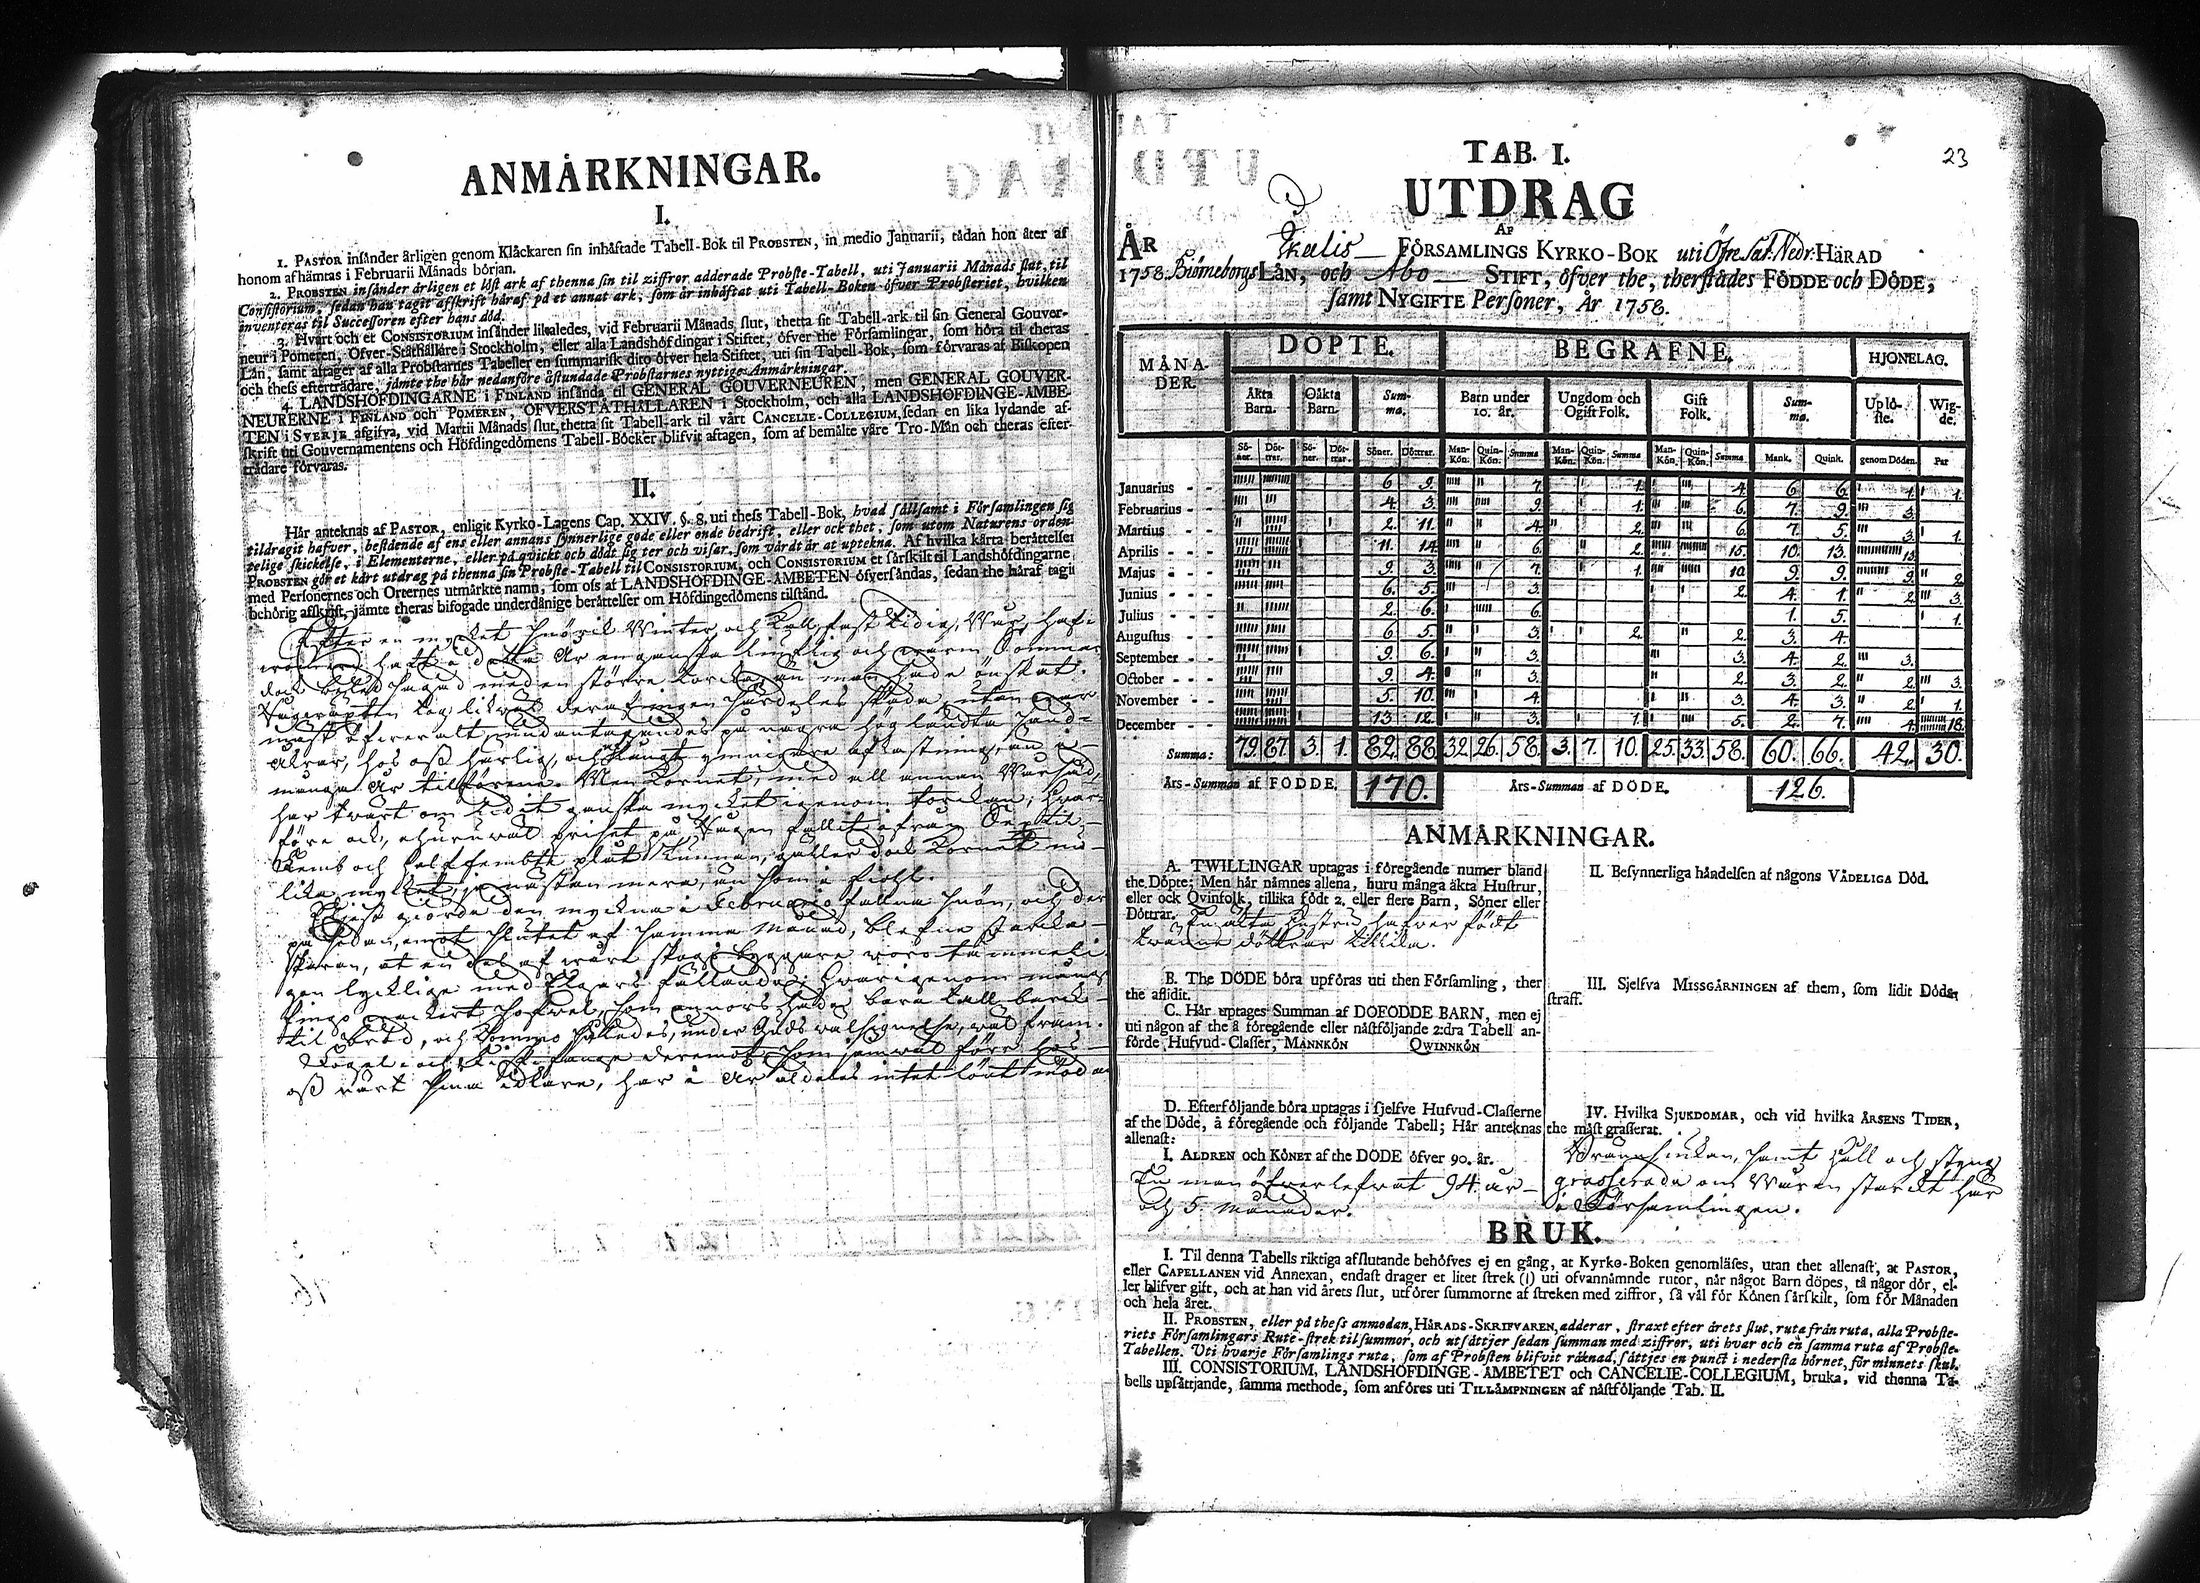 ANMÅRKNINGAR.
I.
1. PASTOR insånder årligen genom Klåckaren sin inhåftade Tabell-Bok til PROBSTEN, in medio Januarii, tådan hon åter af
honom afhämtas i Februarii Månads början.
2. PROBSTEN insånder årligen et löst ark af thenna sin til ziffror adderade Probste-Tabell, uti Januarii Månads slut, til
Consistorium, sedan han tagit afskrift håraf på et annat ark, som är inhåftat uti Tabell-Boken öfver Probsteriet, hvilken
inventeras til Successoren efter hans död.
3. Hvart och et CONSISTORIUM insånder likaledes, vid Februarii Månads slut, thetta sit Tabell-ark til sin General Gouver-
neur i Pomeren, Öfver-Ståthållare i Stockholm, eller alla Landshöfdingar i Stiftet, öfver the Församlingar, som höra til theras
Lån, samt aftager af alla Probstarnes Tabeller en summarisk dito öfver hela Stiftet, uti sin Tabell-Bok, som förvaras af Biskopen
och thess eftertrådare, jåmte the hår nedanföre åstundade Probstarnes nyttige Anmårkningar.
4. LANDSHÖFDINGARNE i FINLAND insånda til GENERAL GOUVERNEUREN, men GENERAL GOUVER-
NEURERNE i FINLAND och POMEREN, ÖFVERSTÅTHÅLLAREN i Stockholm, och alla LANDSHÖFDINGE-ÅMBE-
TEN i SVERJE afgifva, vid Martii Månads slut, thetta sit Tabell-ark til vårt CANCELIE-COLLEGIUM, sedan en lika lydande af-
skrift uti Gouvernamentens och Höfdingedömens Tabell-Böcker blifvit aftagen, som af bemålte våre Tro-Mån och theras efter-
trådare förvaras.
II.
Hår anteknas af PASTOR, enligit Kyrko-Lagens Cap. XXIV. §. 8, uti thess Tabell-Bok, hvad sållsamt i Församlingen sig
tildragit hafver, bestående af ens eller annans synnerlige gode eller onde bedrift, eller ock thet, som utom Naturens orden-
telige skickelse, i Elementerne, eller på qvickt och dödt sig ter och visar, som vårdt år at uptekna. Af hvilka kårta beråttelser
PROBSTEN gör et kårt utdrag på thenna sin Probste-Tabell til CONSISTORIUM, och CONSISTORIUM et sårskilt til Landshöfdingarne,
med Personernes och Orternes utmårkte namn, som oss af LANDSHÖFDINGE-ÅMBETEN öfversåndas, sedan the håraf tagit
behörig afskrift, jämte theras bifogade underdånige beråttelser om Höfdingedömens tilstånd.
Efter en mycket snörik Winter och
hatt i detta År en ganska
med en större torka, än man hade önskat.
tog likwäl deraf ingen särdeles skada, utan war
mäst öfwer alt, undantagandes på några högländta sand-
åkrar, hos oss härlig, och
många År tillförene. Men Kornet, med all annan
har twärt om lidit ganska mycket igenom torkan;
före ock, ehuruwäl priset på Rågen fallit ifrån
gäller dock Kornet
lika mycket, ja nästan mera, än
giorde den myckna i Februario fallna snön, och der
på sedan, emot slutet af samma Månad, blefne starcka
at en del af wårt skogs byggare woro tämmeli-
gen lycklige med Elgars fällande; hwarigenom
som annors hade bara tall barck
til bröd, och Guds wälsignelse, wäl fram.
Fogel- och deremot, som
oss warit har i År aldeles intet lönt mödan.
TAB. I.
UTDRAG
23
AF
ÅR Ikalis FÖRSAMLINGS KYRKO-BOK uti Öfre Sat: Nedr: HÄRAD
1758. Biörneborgs LÄN, och Åbo STIFT, öfver the, therstådes FÖDDE och DÖDE,
samt NYGIFTE Personer, År 1758.
MÅNA-DER. DÖPTE. BEGRAFNE. HJONELAG.
Åkta Barn. Oåkta Barn. Sum-ma. Barn under 10. år. Ungdom och Ogift Folk. Gift Folk. Sum-ma. Uplö-ste. Wig-de.
Sö-ner. Döt-trar. Sö-ner. Döt-trar. Söner. Döttrar. Man-Kön. Quin-Kön. Summa Man-Kön. Quin-Kön. Summa Man-Kön. Quin-Kön. Summa Mank. Quink. genom Döden. Par
Januarius - - 6. 9. 7. 1. 4. 6. 6. 1. 1.
Februarius - - 4. 3. 9. 1. 6. 7. 9. 3.
Martius - - 2. 11. 4. 2. 6. 7. 5. 3. 1.
Aprilis - - 11. 14. 6. 2. 15. 10. 13. 13.
Majus - - 9. 3. 7. 1. 10. 9. 9. 9. 2.
Junius - - 6. 5. 3. 2. 4. 1. 2. 3.
Julius - - 2. 6. 6. 1. 5. 1.
Augustus - - 6. 5. 3. 2. 2. 3. 4.
September - - 9. 6. 3. 3. 4. 2. 3.
October - - 9. 4. 3. 2. 3. 2. 2. 3.
November - - 5. 10. 4. 3. 4. 3. 2. 1.
December - - 13. 12. 3. 1. 5. 2. 7. 4. 18.
Summa: 79. 87. 3. 1. 82. 88. 32. 26. 58. 3. 7. 10. 25. 33. 58. 60. 66. 42. 30.
Års-Summan af FÖDDE. 170. Års-Summan af DÖDE. 126.
ANMARKNINGAR.
A. TWILLINGAR uptagas i föregående numer bland
the Döpte; Men hår nåmnes allena, huru många åkta Hustrur,
eller ock Qvinfolk, tillika födt 2, eller flere Barn, Söner eller
Döttrar. En äkta Hustru hafwer födt
twänne döttrar tillika.
B. The DÖDE böra upföras uti then Församling, ther
the aflidit.
C. Hår uptages Summan af DÖFÖDDE BARN, men ej
uti någon af the å föregående eller nåstföljande 2:dra Tabell an-
förde Hufvud-Classer, MANNKÖN QWINNKÖN
D. Efterföljande böra uptagas i sjelfve Hufvud-Classerne
af the Döde, å föregående och följande Tabell; Hår anteknas
allenast:
I. ÅLDREN och KÖNET af the DÖDE öfver 90. år.
En man öfwerlefwat 94 år
och 5 månader.
II. Besynnerliga håndelsen af någons VÅDELIGA Död.
III. Sjelfva MISSGÅRNINGEN af them, som lidit Döds-
straff.
IV. Hvilka SJUKDOMAR, och vid hvilka ÅRSENS TIDER,
the måst grasserat.
Brännsiukan, samt håll och styng
grasserade om Wåren starckt här
i Församlingen.
BRUK.
I. Til denna Tabells riktiga afslutande behöfves ej en gång, at Kyrko-Boken genomläses, utan thet allenast, at PASTOR,
eller CAPELLANEN vid Annexan, endast drager et litet strek (|) uti ofvannåmnde rutor, når något Barn döpes, tå någor dör, el-
ler blifver gift, och at han vid årets slut, utförer summorne af streken med ziffror, så vål för Könen sårskilt, som för Månaden
och hela året.
II. PROBSTEN, eller på thess anmodan, HÅRADS-SKRIFVAREN, adderar, straxt efter årets slut, ruta från ruta, alla Probste-
riets Församlingars Rute-strek til summor, och utsåttjer sedan summan med ziffror, uti hvar och en samma ruta af Probste-
Tabellen. Uti hvarje Församlings ruta, som af Probsten blifvit råknad, såttjes en punct i nedersta hörnet, för minnets skul.
III. CONSISTORIUM, LANDSHÖFDINGE-ÅMBETET och CANCELIE-COLLEGIUM, bruka, vid thenna Ta-
bells upsåttjande, samma methode, som anföres uti TILLÅMPNINGEN af nåstföljande Tab. II.